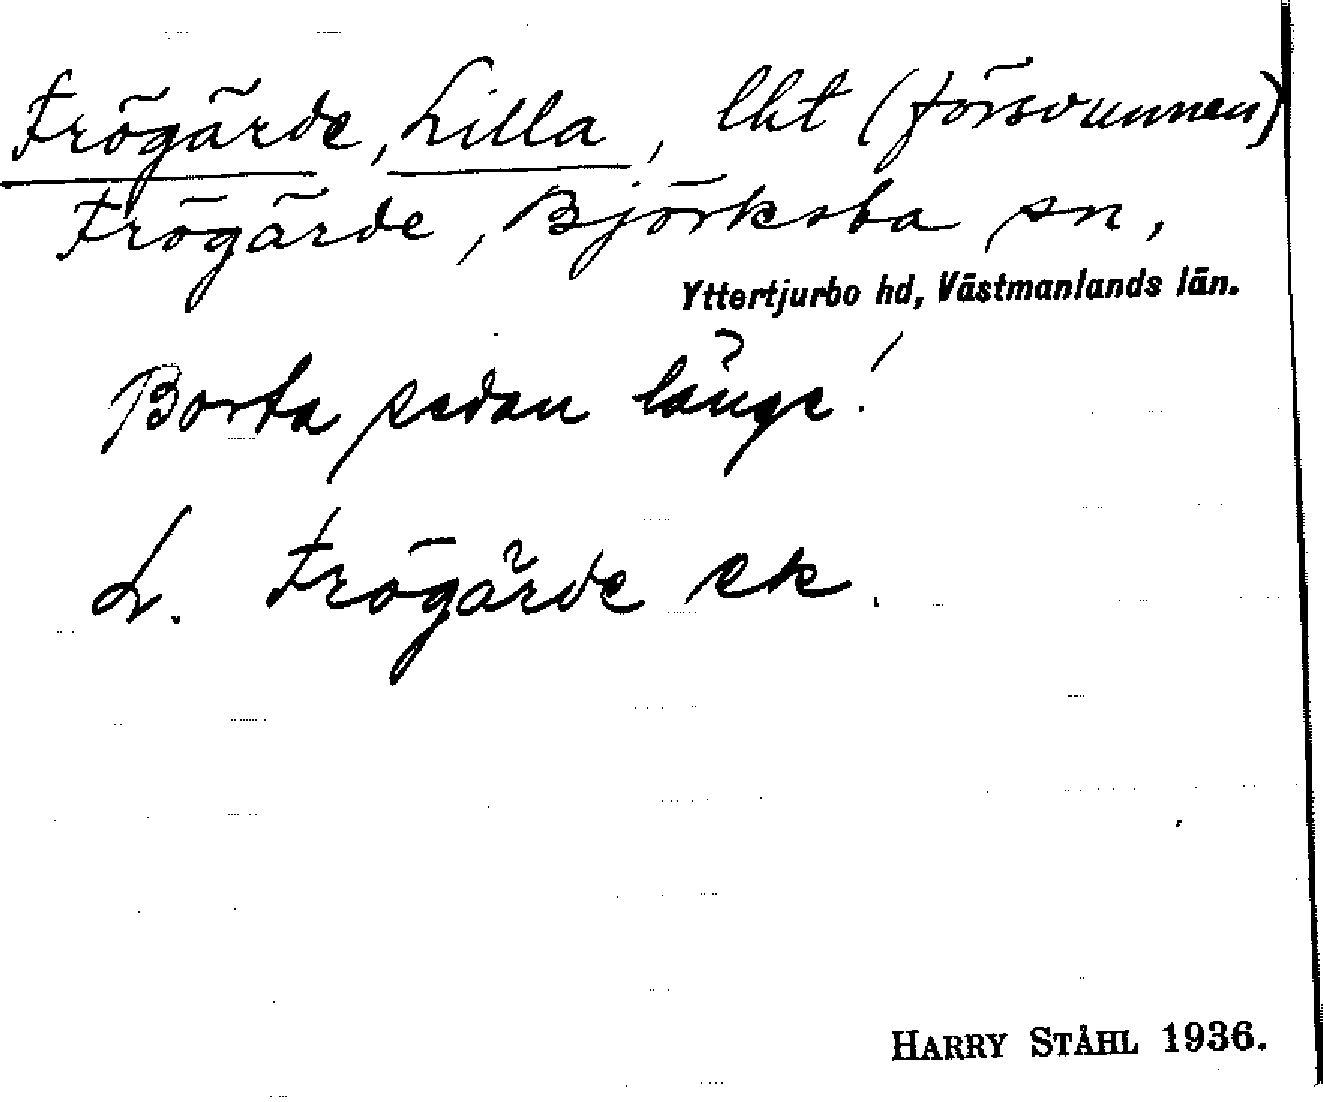 Frögärde, Lilla, lht (försvunnen)
Frögärde, Björksta sn,
Yttertjurbo hd, Västmanlands län.
Borta sedan länge!
L. Frögärde ek.
HARRY STÅHL 1936.